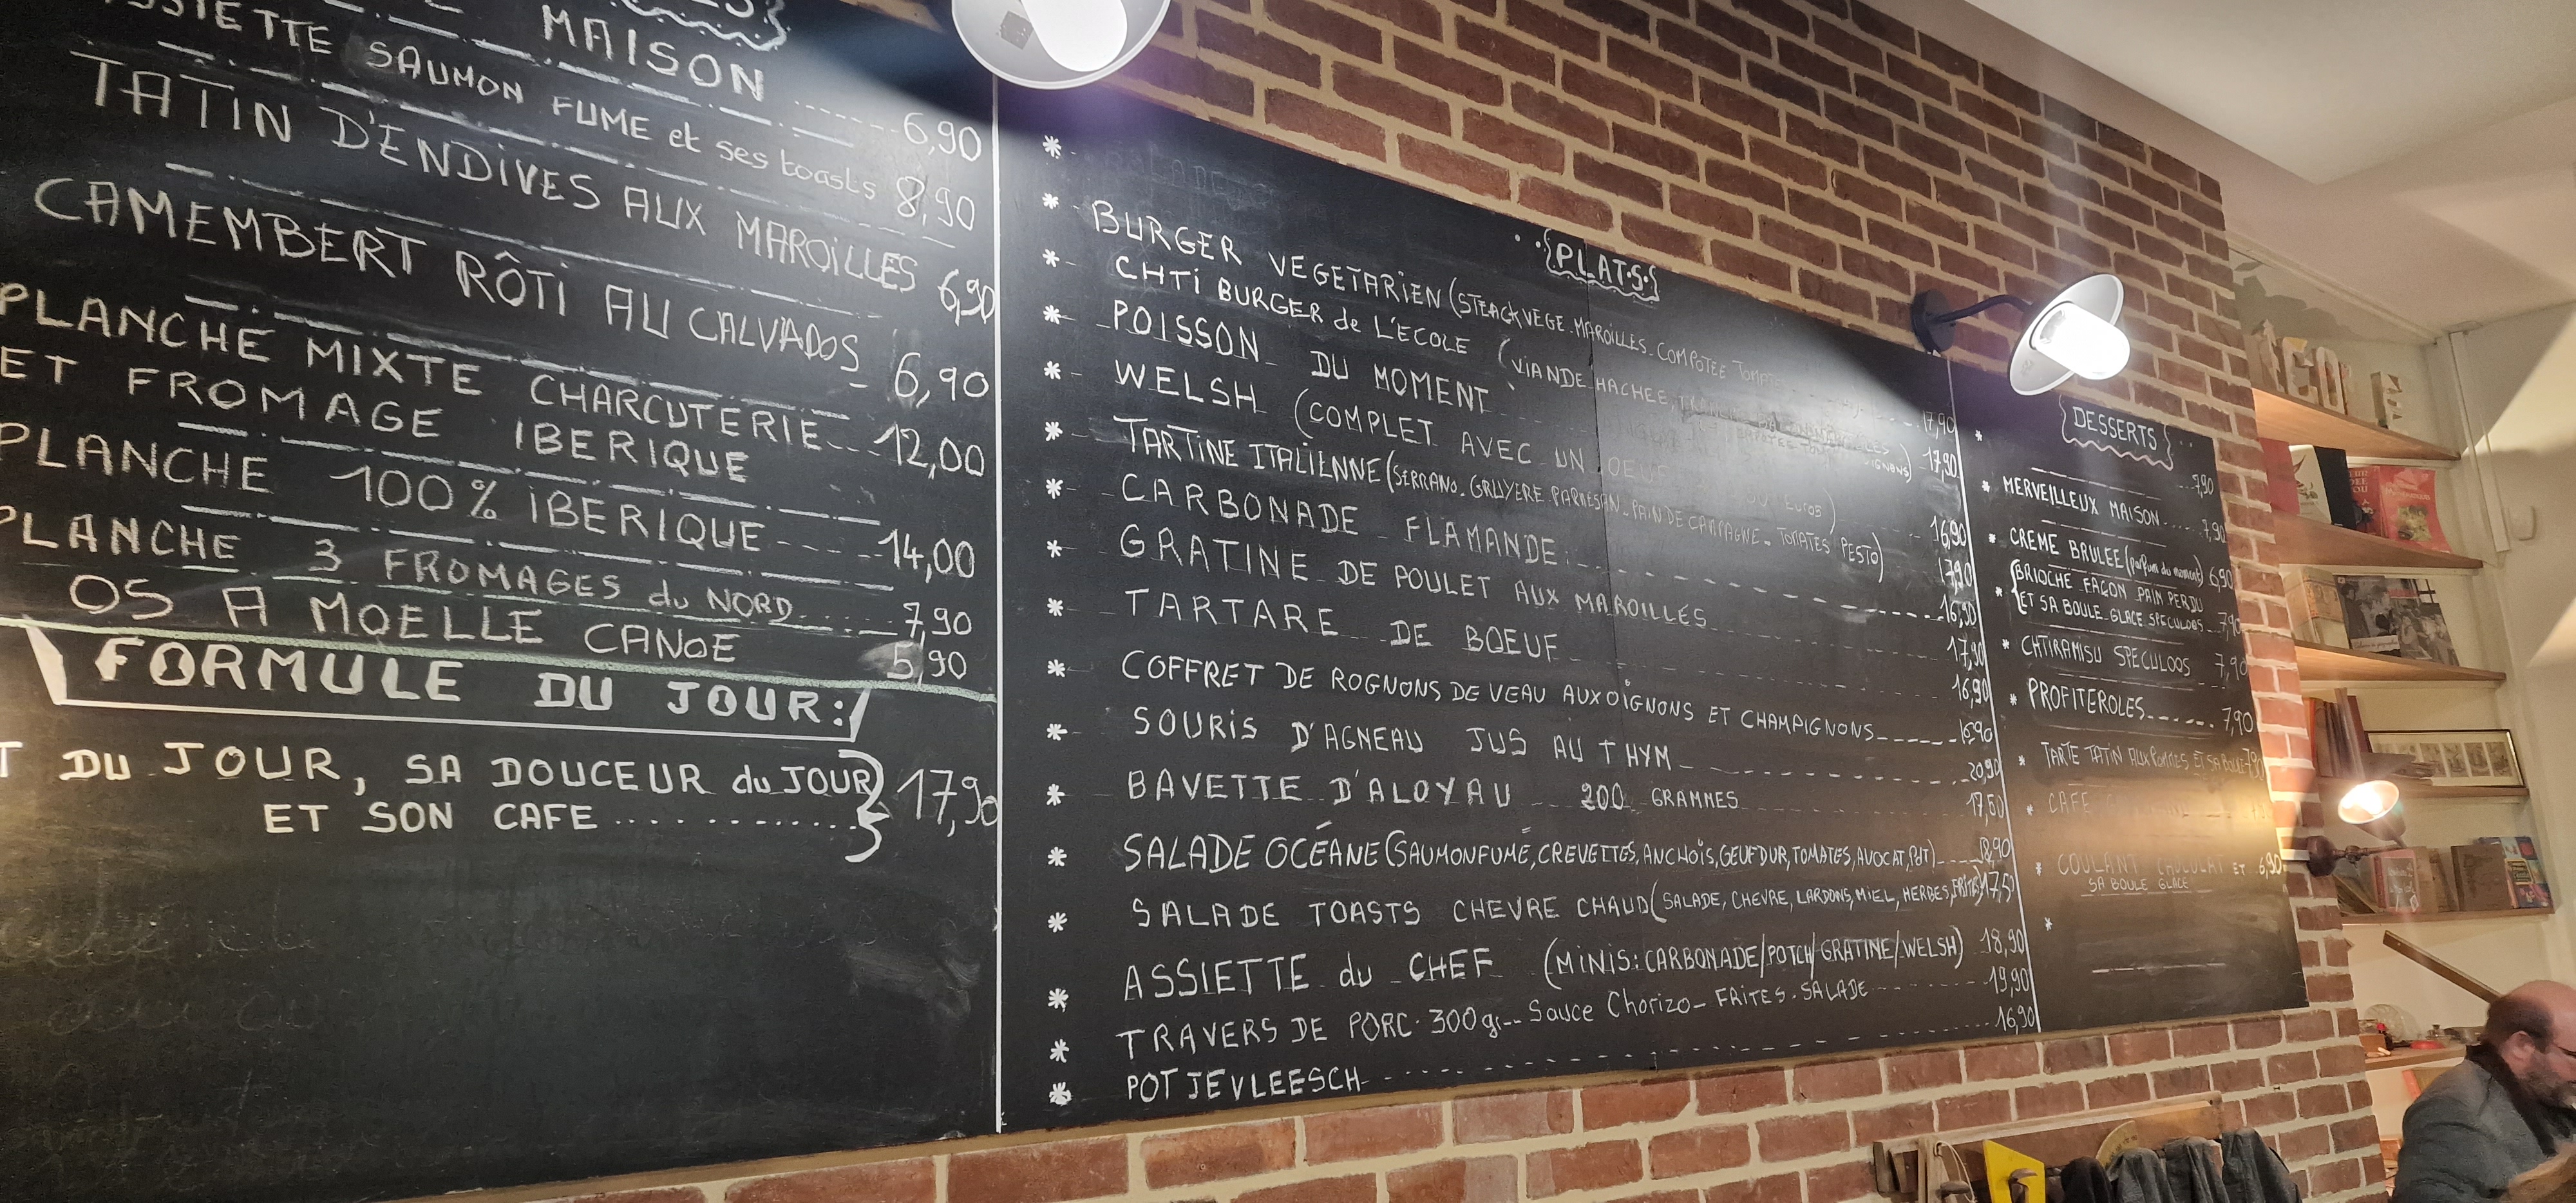 MAISON 6,90
SAUMON FUME et ses toasts 8,90
TATIN D'ENDIVES AUX MAROILLES 6,90
CAMEMBERT RÔTI AU CALVADOS 6,90
PLANCHE MIXTE CHARCUTERIE 12,00
ET FROMAGE IBERIQUE
PLANCHE 100% IBERIQUE 14,00
PLANCHE 3 FROMAGES du NORD 7,90
OS A MOELLE CANOE 5,90
FORMULE DU JOUR:
DU JOUR, SA DOUCEUR du JOUR
ET SON CAFE 17,90
PLATS
BURGER VEGETARIEN (STEACK VEGE. MAROILLES. COMPOTEE TOMATES 17,90
CHTI BURGER de L'ECOLE (VIANDE HACHEE, 17,90
POISSON DU MOMENT
WELSH (COMPLET AVEC UN OEUF Euros) 16,90
TARTINE ITALIENNE (SERRANO. GRUYERE. PARMESAN. PAIN DE CAMPAGNE. TOMATES PESTO) 17,90
CARBONADE FLAMANDE 16,90
GRATINE DE POULET AUX MAROILLES 17,90
TARTARE DE BOEUF 16,90
COFFRET DE ROGNONS DE VEAU AUX OIGNONS ET CHAMPIGNONS 16,90
SOURIS D'AGNEAU JUS AU THYM 20,90
BAVETTE D'ALOYAU 200 GRAMMES 17,50
SALADE OCÉANE (SAUMON FUMÉ, CREVETTES, ANCHOIS, OEUF DUR, TOMATES, AVOCAT, PdT) 18,90
SALADE TOASTS CHEVRE CHAUD (SALADE, CHEVRE, LARDONS, MIEL, HERBES, FRITES) 17,50
ASSIETTE du CHEF (MINIS: CARBONADE/POTCH/GRATINE/WELSH) 18,90
TRAVERS DE PORC. 300gr-- Sauce Chorizo - FRITES. SALADE 19,90
POTJEVLEESCH 16,90
DESSERTS
7,90
MERVEILLEUX MAISON 7,90
CREME BRULEE (parfum du moment) 6,90
BRIOCHE FAÇON PAIN PERDU
ET SA BOULE GLACE SPECULOOS 7,90
CHTIRAMISU SPECULOOS 7,90
PROFITEROLES 7,90
TARTE TATIN AUX POMMES ET SA BOULE 7,90
CAFE
COULANT CHOCOLAT ET 6,90
SA BOULE GLACE